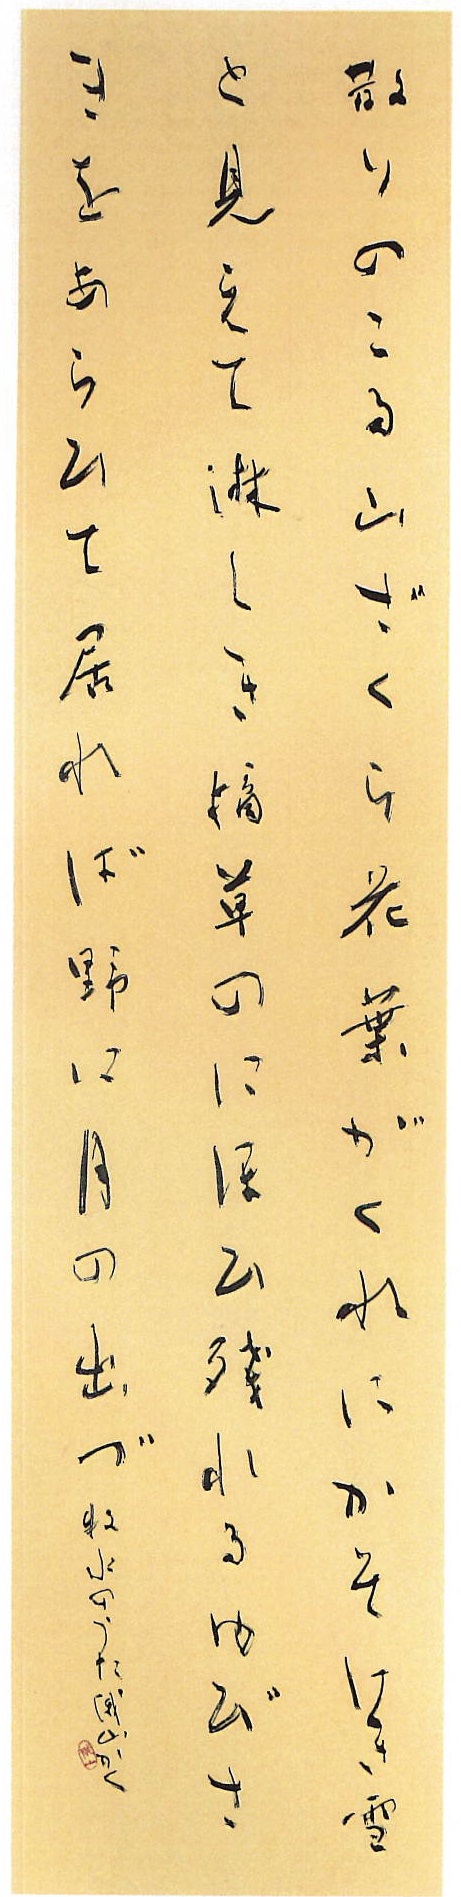 散りのこる山ざくら花葉がくれにかそけき雪
と見えて淋しき摘草のにほひ残れるゆびさ
きをあらひて居れば野に月の出づ 牧水のうた